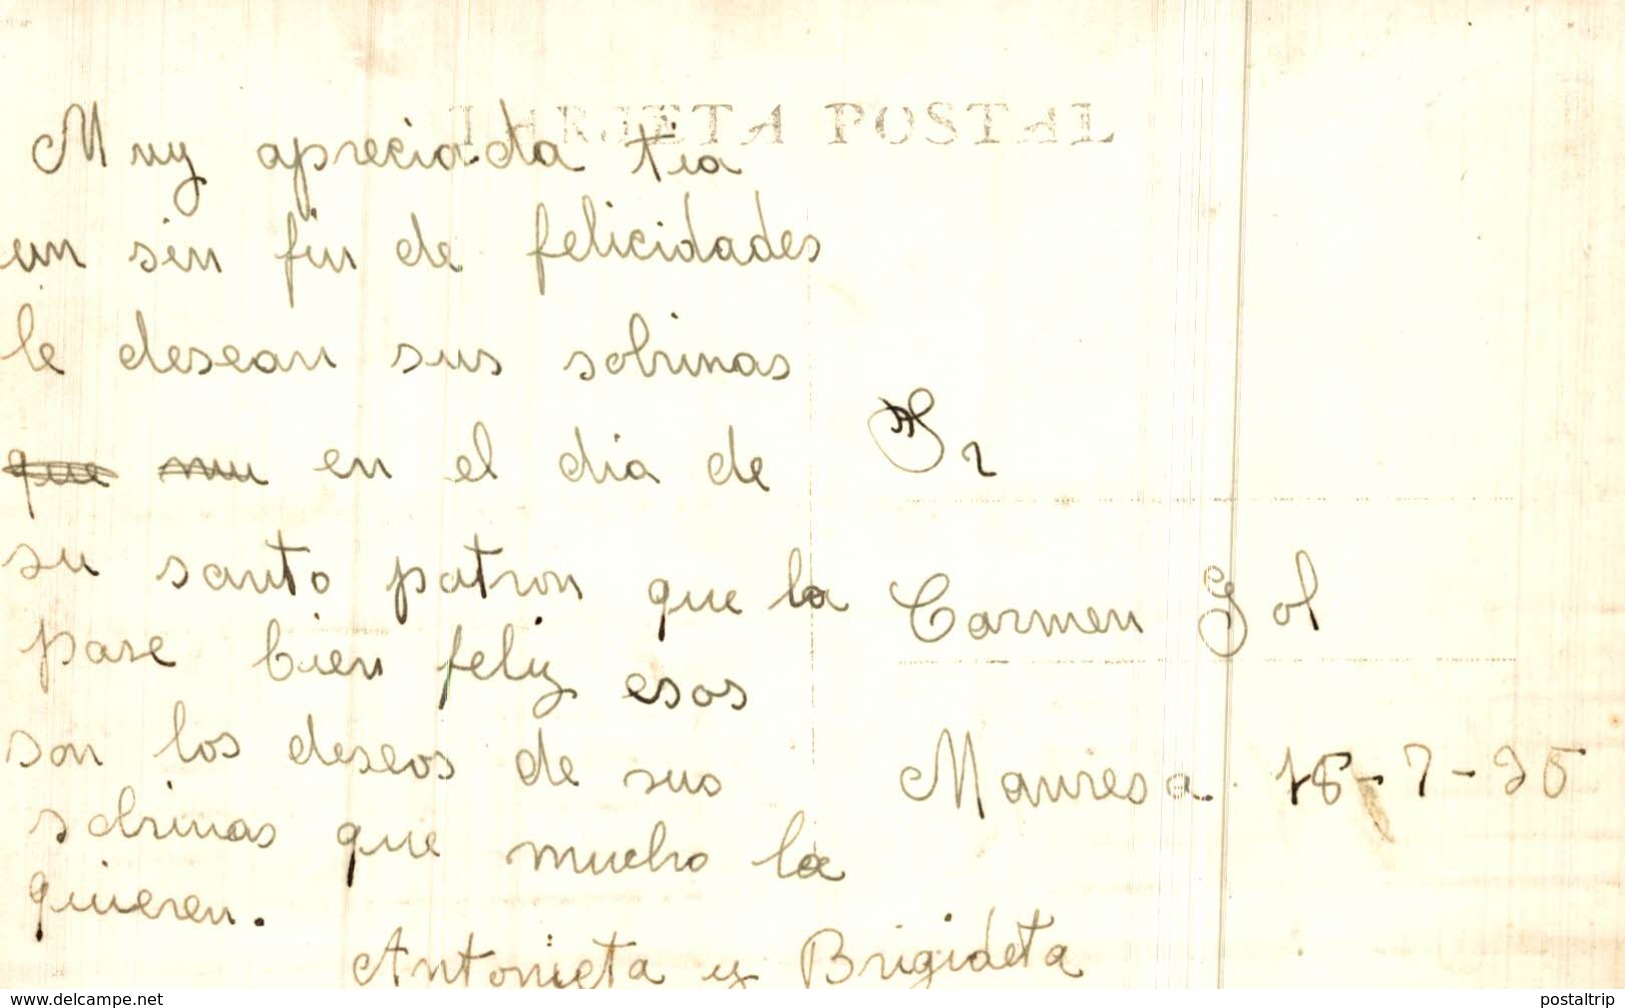 TARJETA POSTAL
Muy apreciada tia
un sin fin de felicidades
le desean sus sobrinas
que mu en el dia de
su santo patron que la
pase bien feliz esos
son los deseos de sus
sobrinas que mucho la
quieren.
Antonieta y Brigideta
Sr
Carmen Gol
Manresa 18-7-35
www.delcampe.net
postaltrip